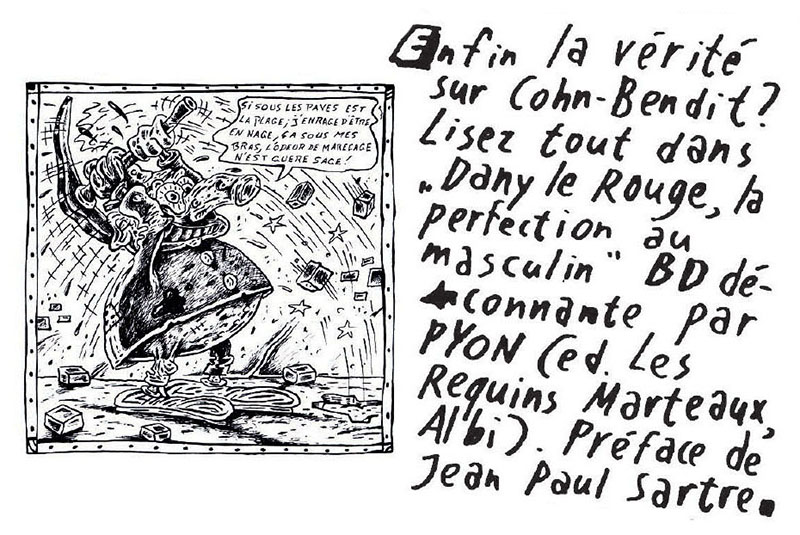 SI SOUS LES PAVES EST
LA PLAGE, J'ENRAGE D'ÊTRE
EN NAGE, ÇA SOUS MES
BRAS, L'ODEUR DE MARECAGE
N'EST GUERE SAGE!
Enfin la vérité
sur Cohn-Bendit?
Lisez tout dans
„Dany le Rouge, la
perfection au
masculin" BD dé-
connante par
PYON (ed. Les
Requins Marteaux,
Albi). Préface de
Jean Paul Sartre.